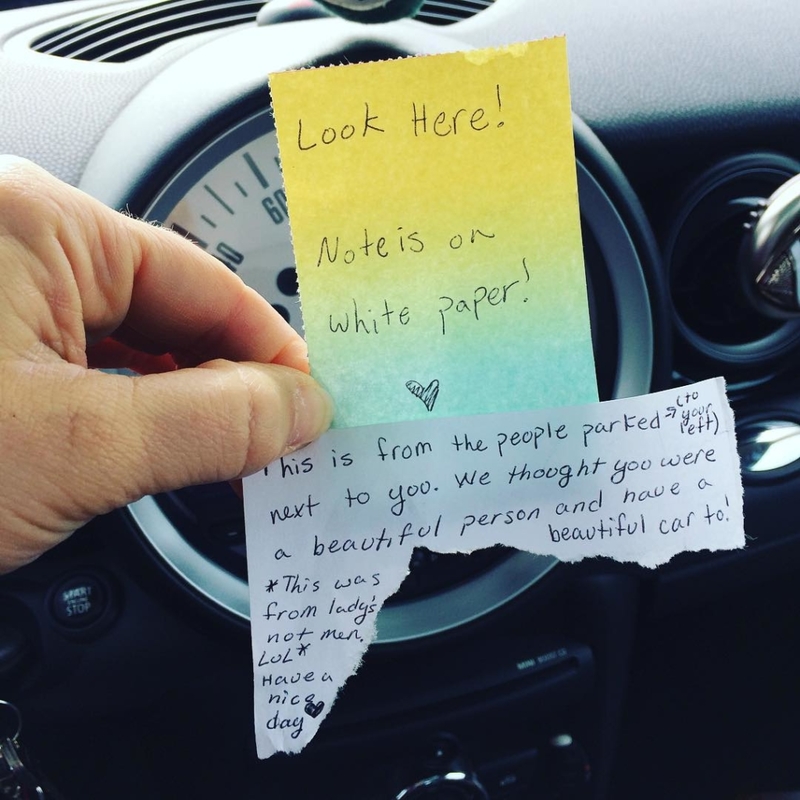 Look Here!
Note is on
white paper!
This is from the people parked → (to your left)
next to you. We thought you were
a beautiful person and have a
beautiful car to!
*This was
from lady's
not men.
LoL*
Have a
nice
day
60
START
STOP